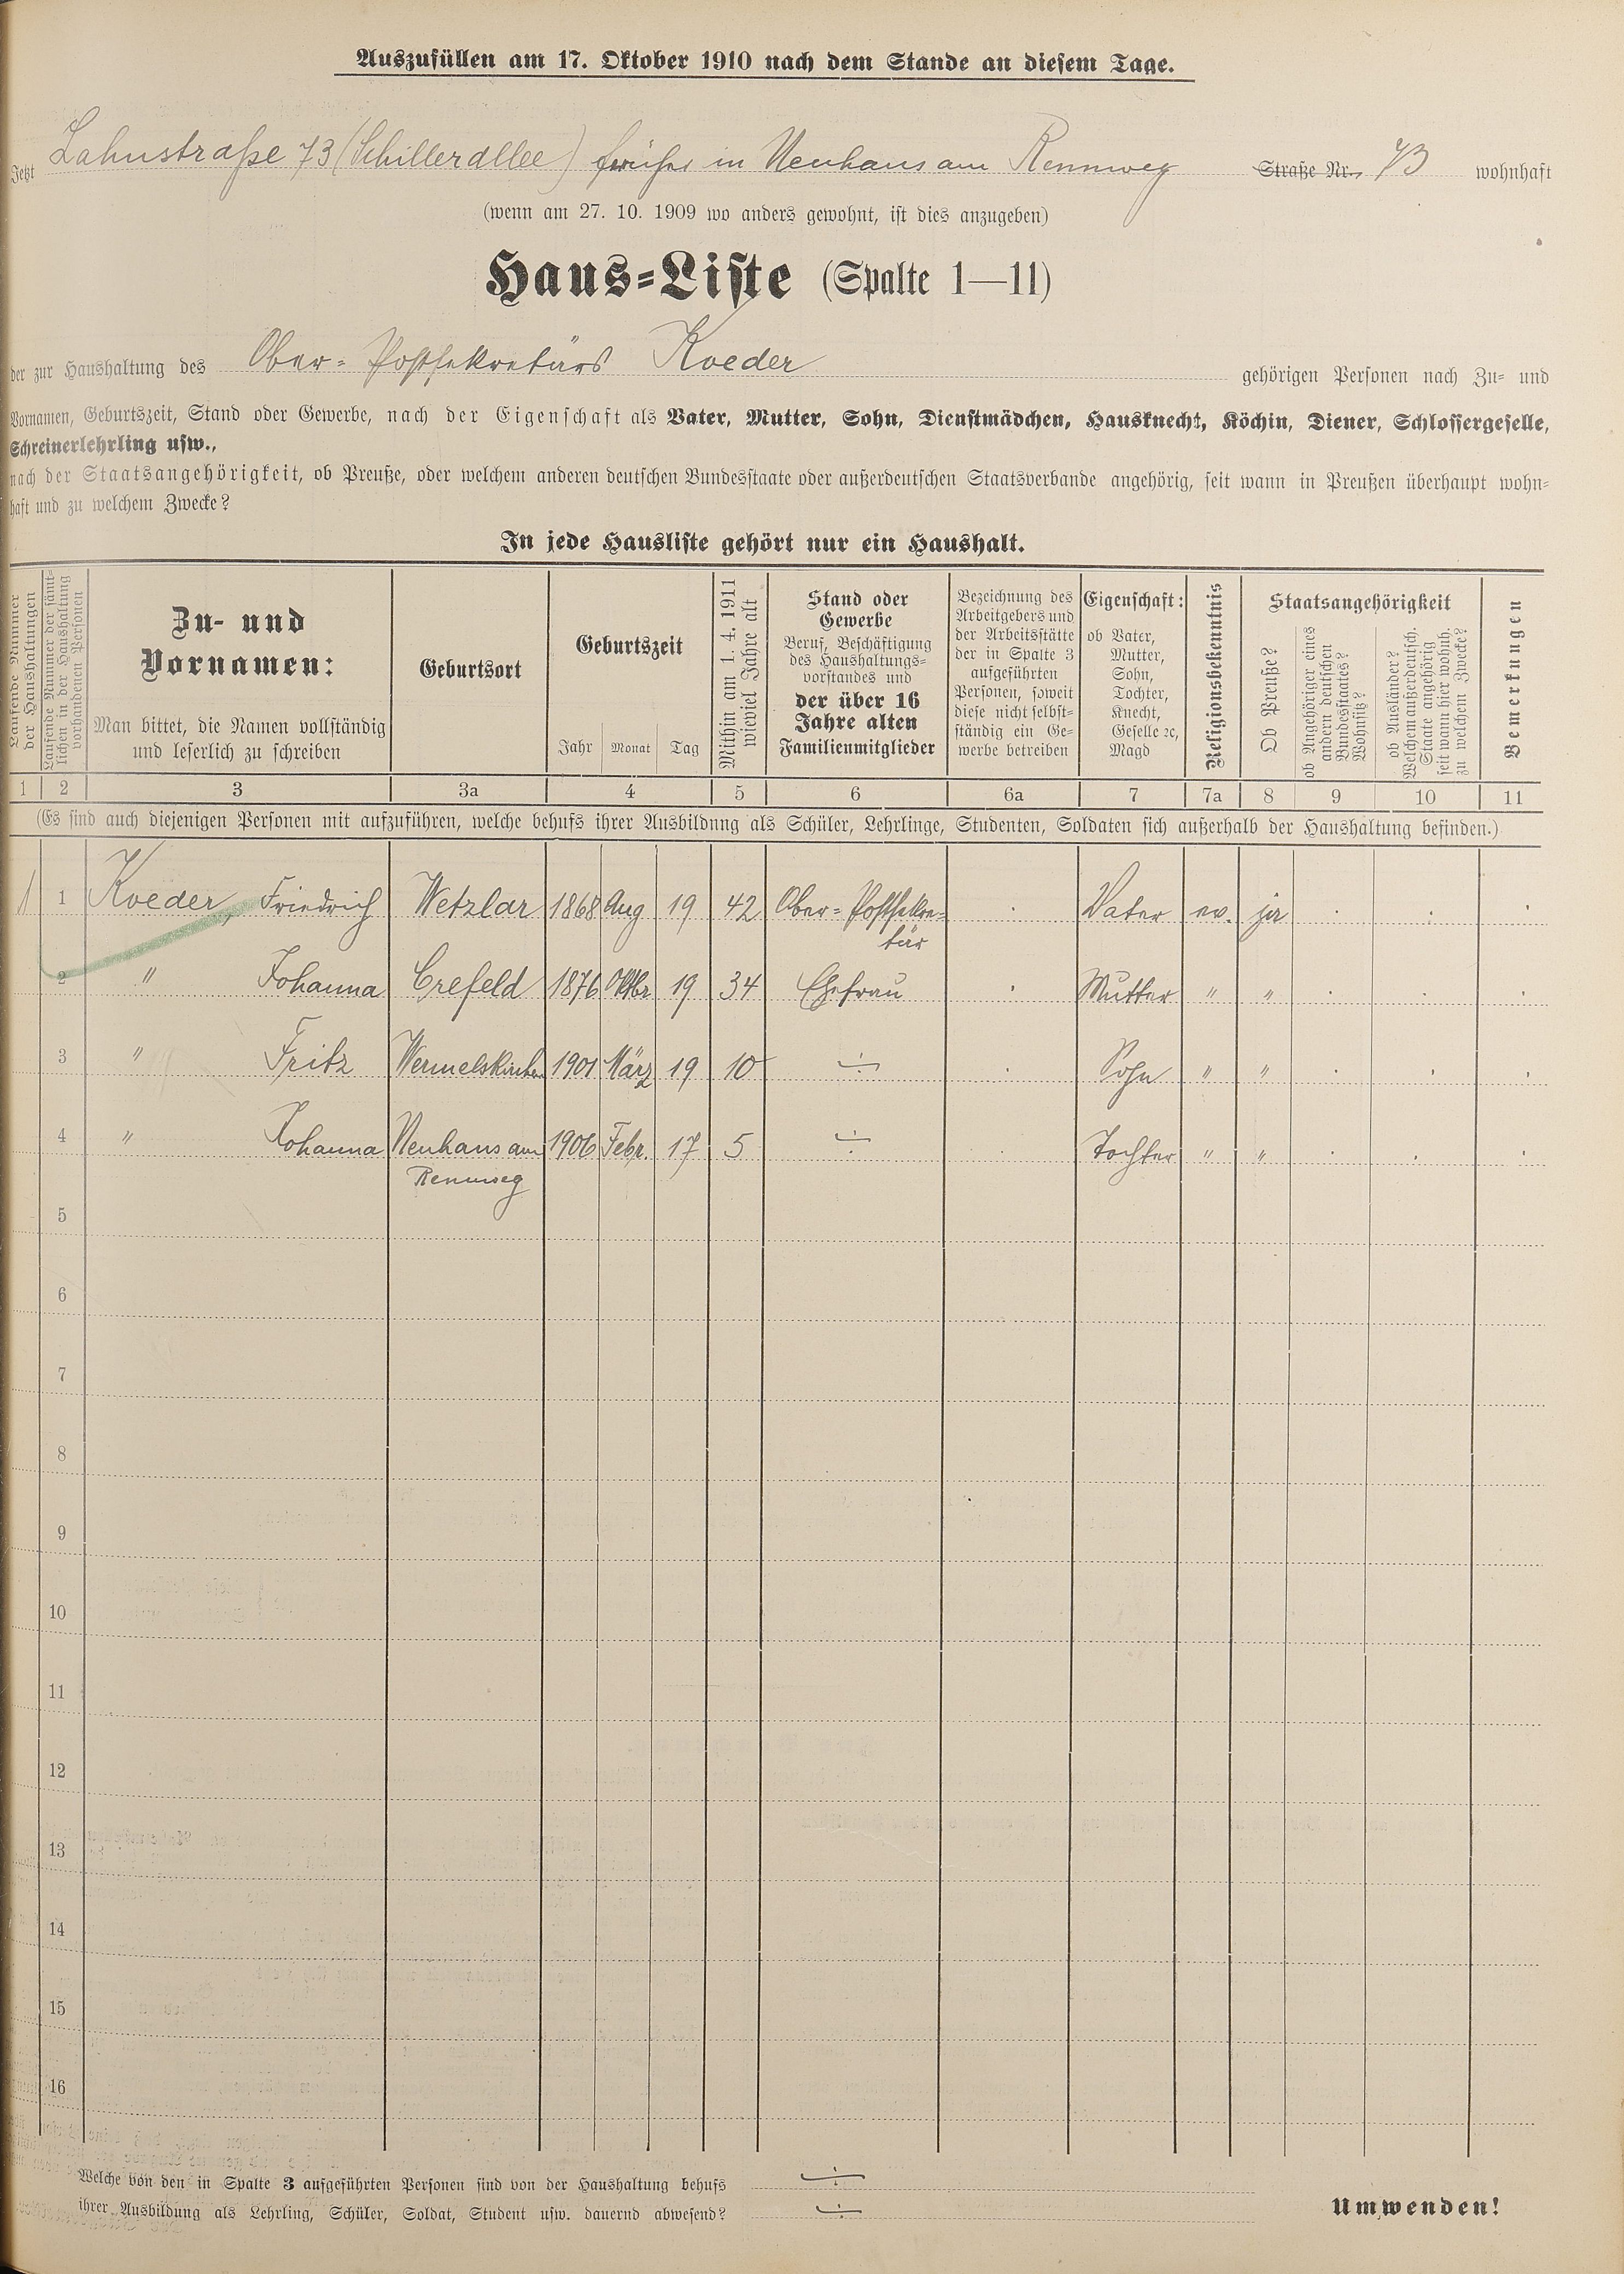 Auszufüllen am 17. Oktober 1910 nach dem Stande an diesem Tage.
Jetzt Lahnstraße 73 (Schillerallee) früher in Neuhaus am Rennweg Straße Nr. 73 wohnhaft
(wenn am 27. 10. 1909 wo anders gewohnt, ist dies anzugeben)
Haus-Liste (Spalte 1—11)
der zur Haushaltung des Ober-Postsekretärs Roeder gehörigen Personen nach Zu- und
Vornamen, Geburtszeit, Stand oder Gewerbe, nach der Eigenschaft als Vater, Mutter, Sohn, Dienstmädchen, Hausknecht, Köchin, Diener, Schlossergeselle,
Schreinerlehrling usw.,
nach der Staatsangehörigkeit, ob Preuße, oder welchem anderen deutschen Bundesstaate oder außerdeutschen Staatsverbande angehörig, seit wann in Preußen überhaupt wohn-
haft und zu welchem Zwecke?
In jede Hausliste gehört nur ein Haushalt.
Laufende Nummer
der Haushaltungen
Laufende Nummer der sämt-
lichen in der Haushaltung
vorhandenen Personen
Zu- und
Vornamen:
Man bittet, die Namen vollständig
und leserlich zu schreiben
Geburtsort
Geburtszeit
Jahr Monat Tag
Mithin am 1. 4. 1911
wieviel Jahre alt
Stand oder
Gewerbe
Beruf, Beschäftigung
des Haushaltungs-
vorstandes und
der über 16
Jahre alten
Familienmitglieder
Bezeichnung des
Arbeitgebers und
der Arbeitsstätte
der in Spalte 3
aufgeführten
Personen, soweit
diese nicht selbst-
ständig ein Ge-
werbe betreiben
Eigenschaft:
ob Vater,
Mutter,
Sohn,
Tochter,
Knecht,
Geselle ꝛc,
Magd
Religionsbekenntnis
Staatsangehörigkeit
Ob Preuße?
ob Angehöriger eines
andern deutschen
Bundesstaates?
Wohnsitz?
ob Ausländer?
Welchen außerdeutsch.
Staate angehörig
seit wann hier wohnh.
zu welchem Zwecke?
Bemerkungen
1 2 3 3a 4 5 6 6a 7 7a 8 9 10 11
(Es sind auch diejenigen Personen mit aufzuführen, welche behufs ihrer Ausbildung als Schüler, Lehrlinge, Studenten, Soldaten sich außerhalb der Haushaltung befinden.)
1 Roeder, Friedrich Wetzlar 1868 Aug 19 42 Ober-Postsekre- Vater ev. ja
tär
2 " Johanna Crefeld 1876 Oktbr 19 34 Ehefrau Mutter " "
3 " Fritz Wermelskirchen 1901 März 19 10 Sohn " "
4 " Johanna Neuhaus am 1906 Febr. 17 5 Tochter " "
Rennweg
5
6
7
8
9
10
11
12
13
14
15
16
Welche von den in Spalte 3 aufgeführten Personen sind von der Haushaltung behufs
ihrer Ausbildung als Lehrling, Schüler, Soldat, Student usw. dauernd abwesend?
Umwenden!